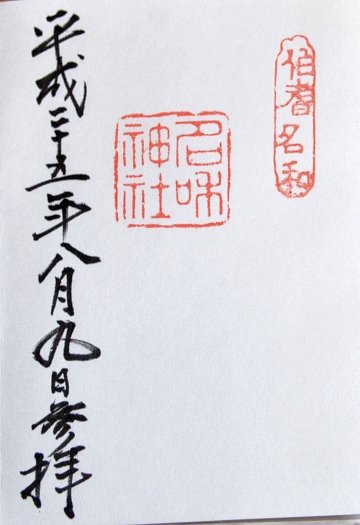 伯耆名和
名和神社
平成二十五年八月九日参拝